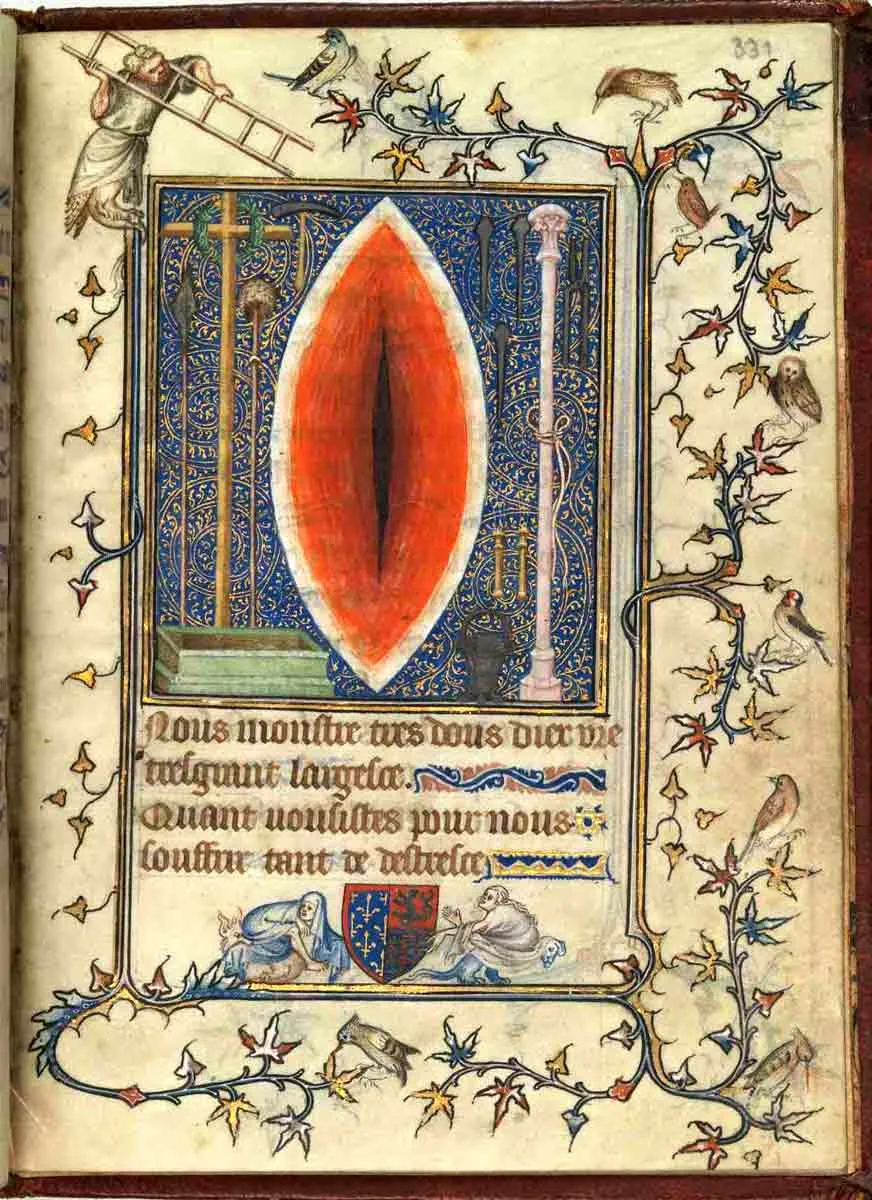 331
Nous monstre tres dous diex vre
tresgrant largesce.
Quant uousistes pour nous
souffrir tant de destresce